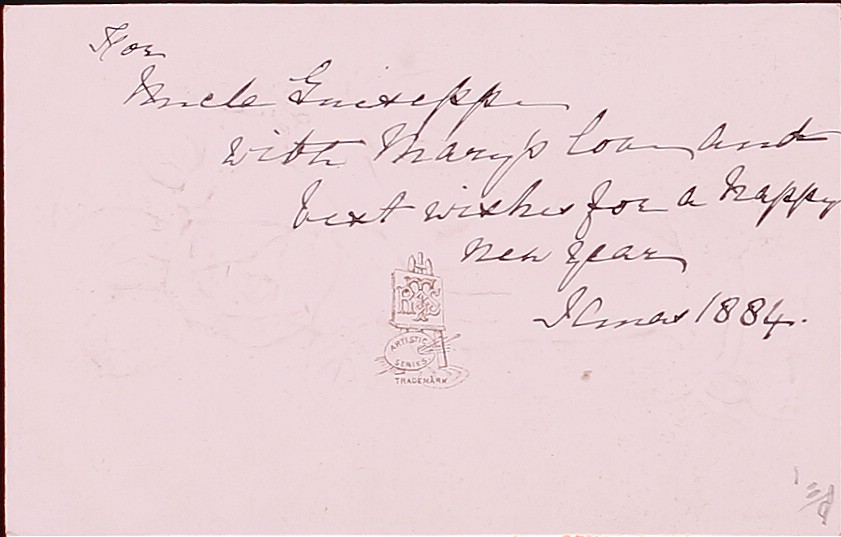 For
Uncle Guiseppe
with Mary's love and
best wishes for a happy
new year
Xmas 1884.
RTS
ARTISTIC
SERIES
TRADEMARK